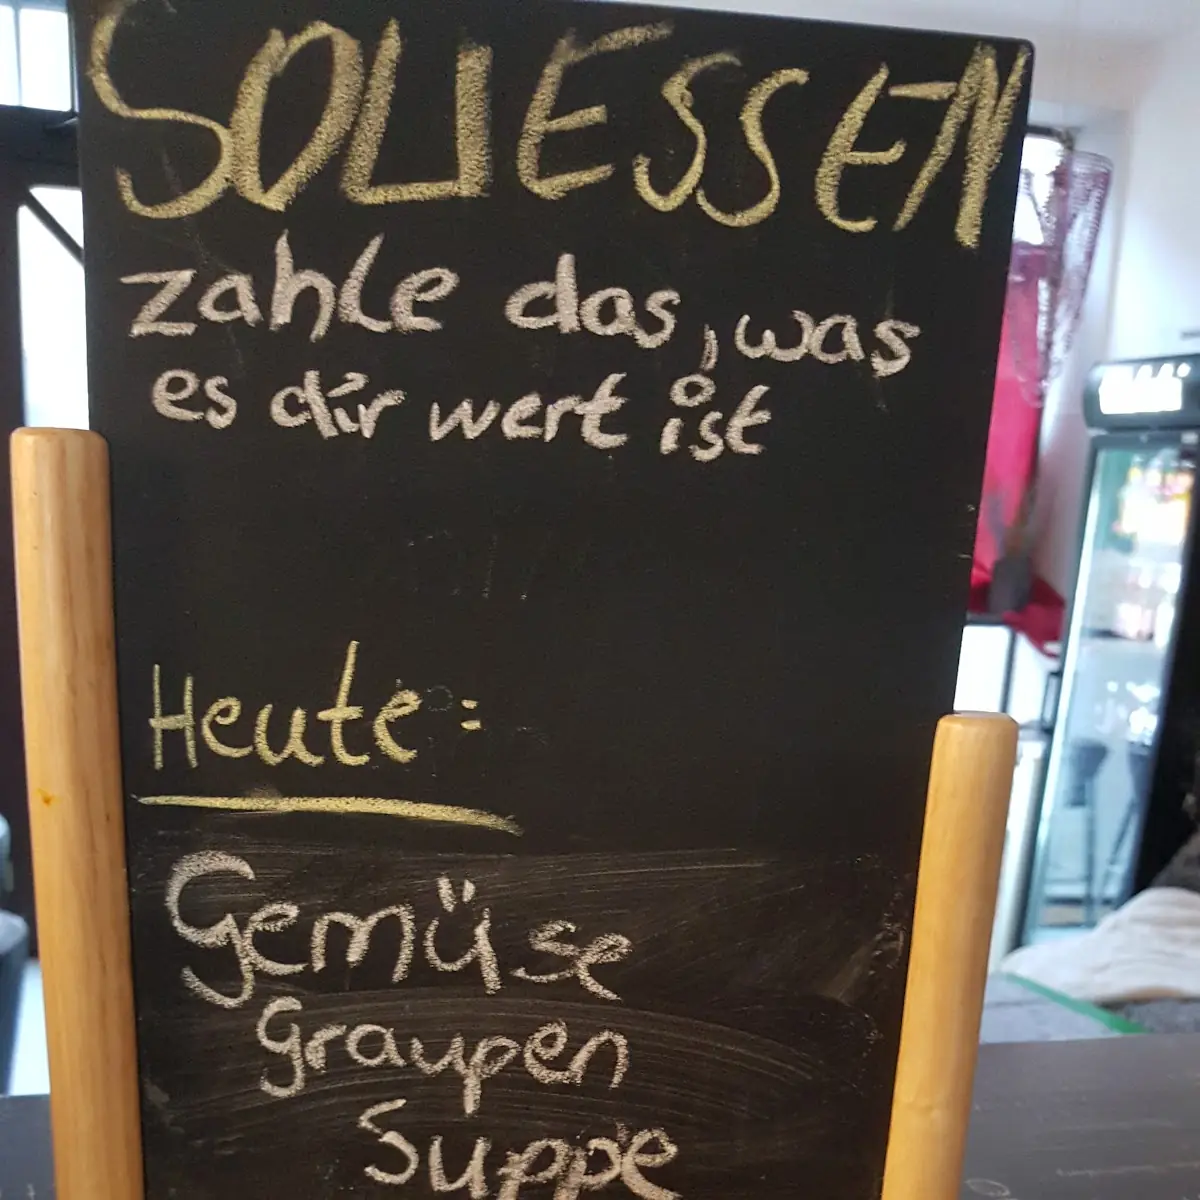 SOLIESSEN
zahle das, was
es dir wert ist
Heute:
Gemüse
graupen
suppe